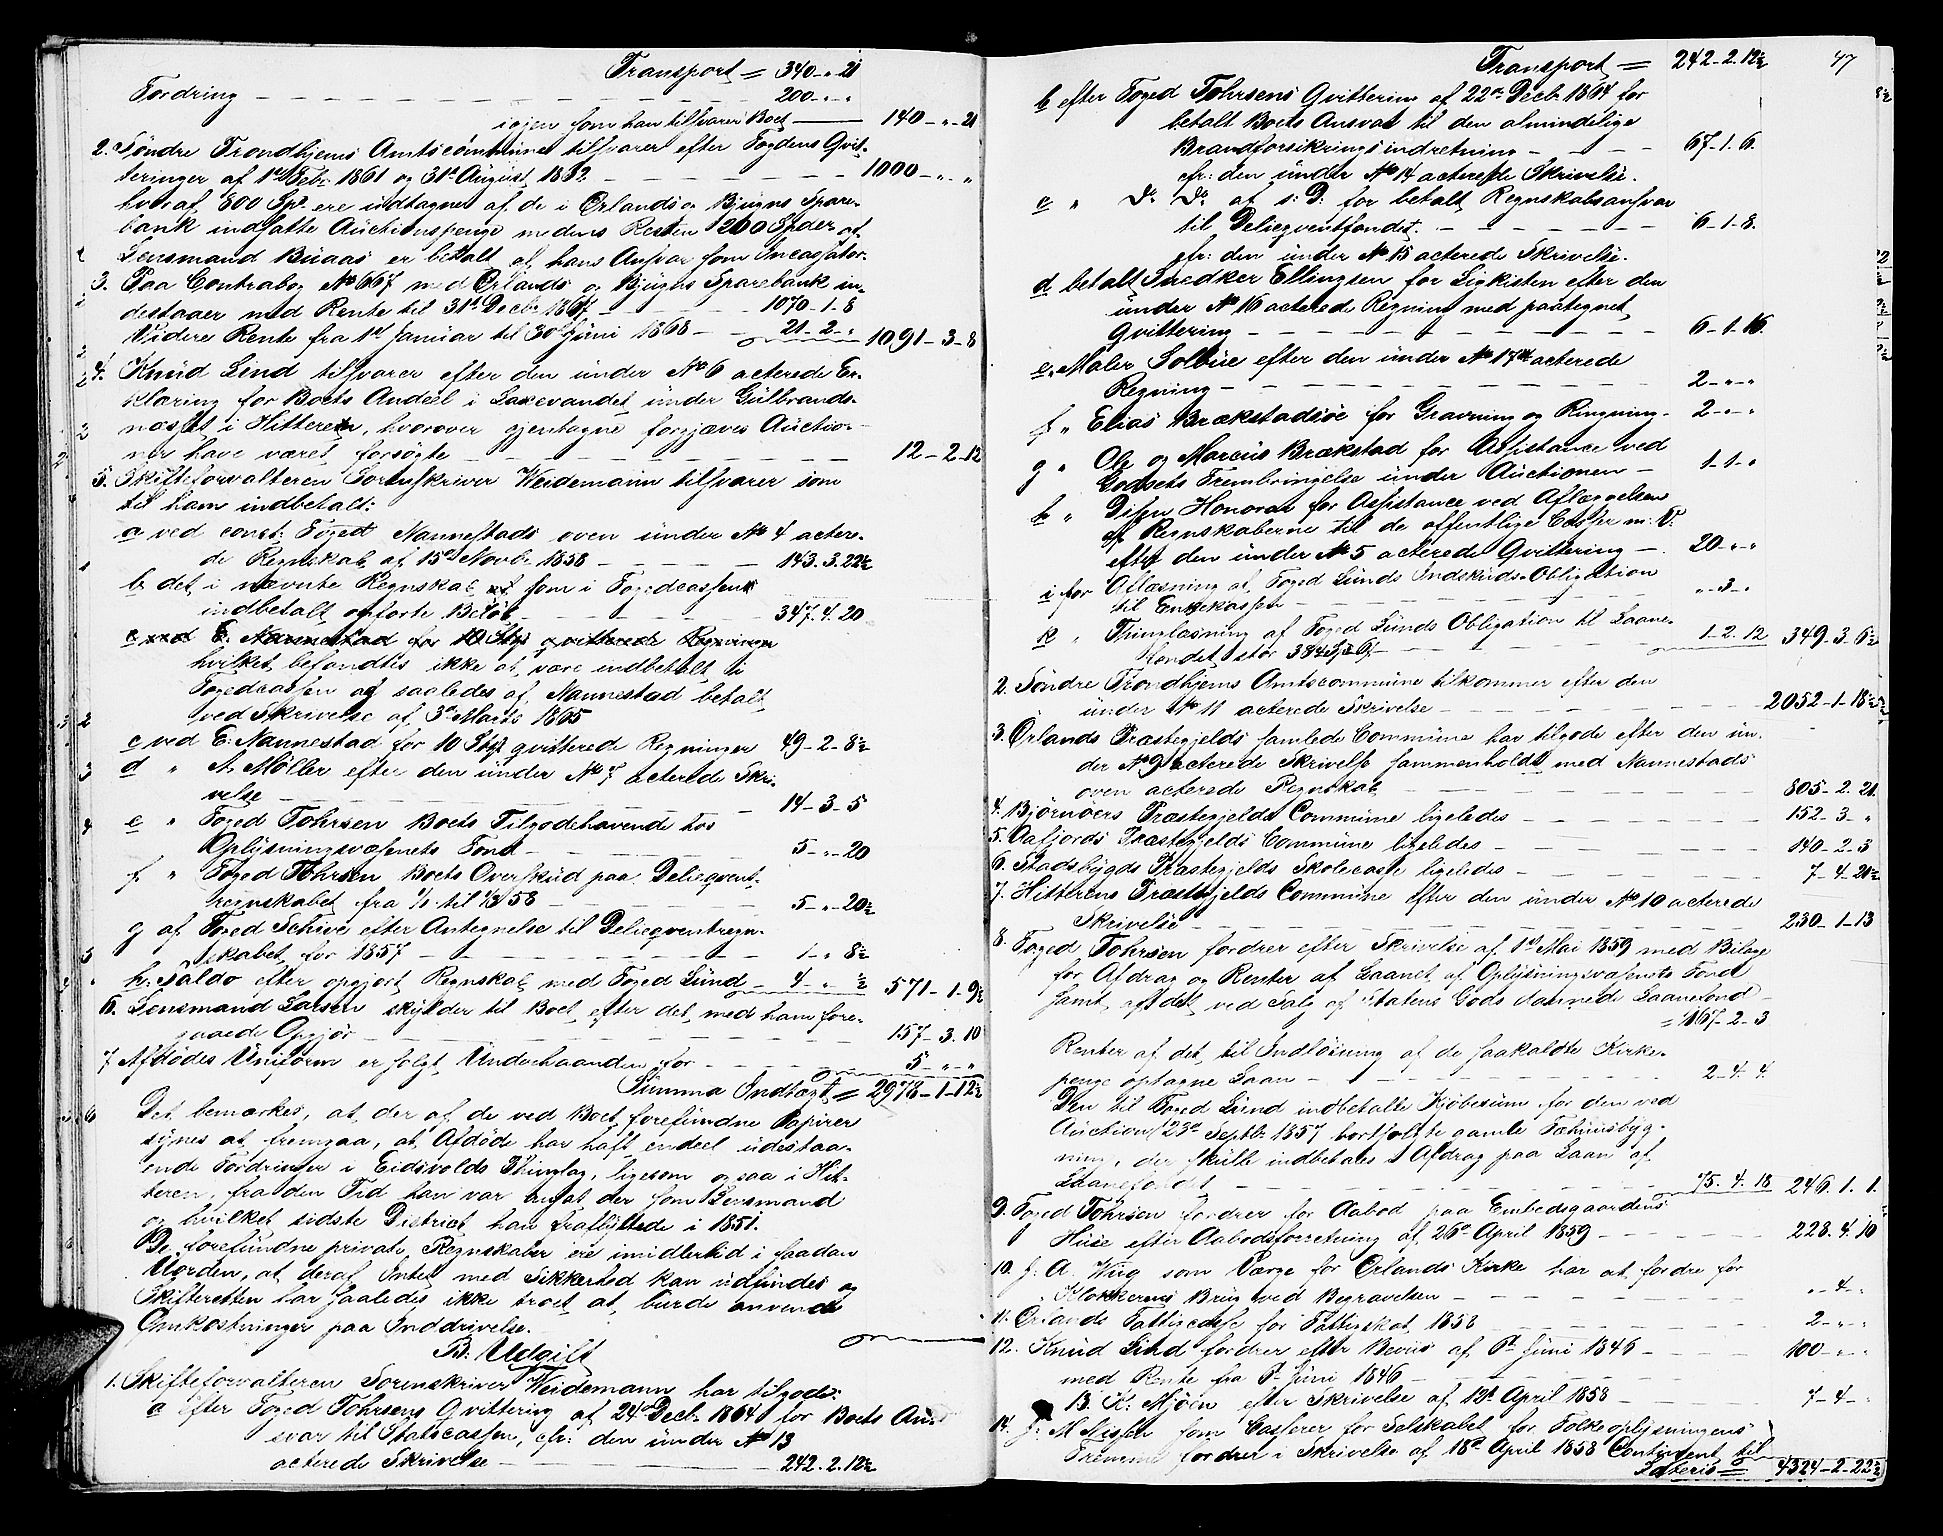 Transport = 340 - " 21
Fordring - - - 200 - " - "
igjen som han tilsvarer Boet - 140 - " - 21
2. Söndre Trondhjems Amtscommune tilsvarer efter Fogdens Qvit-
teringer af 1st Febr. 1861 og 31t August 1862 - - - 1000 - " - "
hvoraf 800 Spd. ere indtagne af de i Örlands og Bjugns Spare-
bank indsatte Auctionspenge medens Resten 200 Spder af
Lensmand Buaas er betalt af hans Ansvar som Incassator.
3. Paa Contrabog No 667 med Örlands og Bjugns Sparebank in-
destaaer med Rente til 31t Decbr 1867 - - 1070 - 1 - 8
Videre Rente fra 1st Januar til 30te Juni 1868 - - 21 - 2 - " 1091 - 3 - 8
4. Knud Lind tilsvarer efter den under No 6 acterede Er-
klæring for Boets Andeel i Laxevandet under Gulbrands-
næsset i Hitteren, hvorover gjentagne forgjæves Auctio-
ner have været forsögte - - - 12 - 2 - 12
5. Skifteforvalteren Sorenskriver Weidemann tilsvarer som
til ham indbetalt:
a ved const: Foged Nannestads oven under No 4 actere-
de Regnskab af 15de Novbr 1858 - - - 143. 3. 22½
b det i nævnte Regnskab som i Fogedcassen
indbetalt opförte Belöb - - - 347. 4. 20
c ved E. Nannestad for 10 Stk qvitterede Regninger
hvilket befandtes ikke at være indbetalt i
Fogedcassen og saaledes af Nannestad betalt
ved Skrivelse af 3de Marts 1865
c ved E. Nannestad for 10 Stk qvitterede Regninger 49 - 2 - 8½
d " A. Möller efter den under No 7 acterede Skri-
velse - - - 14 - 3 - 5
e " Foged Tohrsen Boets Tilgodehavende hos
Oplysningsvæsenets Fond - - - 5 - " - 20
f. " Foged Tohrsen Boets Overskud paa Deliqvent-
regnskabet fra 1/1 til /58 - - - 5 - " - 20½
g af Foged Schive efter Antegnelse til Deliqventregn-
skabet for 1857 - - - 1 - " 8½
h. Saldo efter opgjort Regnskab med Foged Lund - 4 - " - ½ 571 - 1 - 9½
6. Lensmand Larsen skylder til Boet efter det med ham fore-
tagede Opgjör - - - 157 - 3. 10
7 Afdödes Uniform er solgt Underhaanden for - - - 5 - " - "
Summa Indtægt = 2978 - 1 - 12½
Det bemærkes, at der af de ved Boet forefundne Papirer
synes at fremgaa, at Afdöde har havt endeel udestaa-
ende Fordringer i Eidsvolds Thinglag, ligesom ogsaa i Hit-
teren, fra den Tid han var ansat der som Lensmand
og hvilket sidste District han fraflyttede i 1851.
De forefundne private Regnskaber ere imidlertid i saadan
Uorden, at deraf Intet med Sikkerhed kan udfindes og
Skifteretten har saaledes ikke troet at burde anvende
Omkostninger paa Inddrivelse.
B: Udgift
1. Skifteforvalteren Sorenskriver Weidemann har tilgode:
a Efter Foged Tohrsens Qvittering af 24de Decbr. 1864 for Boets An-
svar til Statscassen, cfr: den under No 13
acterede Skrivelse - - - 242. 2. 12½
Transport = 242 - 2. 12½
47
b efter Foged Tohrsens Qvittering af 22de Decbr. 1864 for
betalt Boets Ansvar til den almindelige
Brandforsikringsindretning - - - 67 - 1 - 6.
cfr: den under No 14 acterede Skrivelse.
c " Do Do af s: D: for betalt Regnskabsansvar
til Deliqventfondet. - - - 6 - 1 - 8.
cfr: den under No 15 acterede Skrivelse.
d betalt Snedker Ellingsen for Ligkisten efter den
under No 16 acterede Regning med paategnet
Qvittering - - - 6 - 1 - 16
e. Maler Solbue efter den under No 17 acterede
Regning - - - 2 - " - "
f " Elias Brækstadsöe for Gravning og Ringning - 2 - " - "
g " Ole og Marcus Brækstad for Assistance ved
Godsets Frembringelse under Auctionen - 1 - 1 - "
h " Disen Honorar for Assistance ved Aflæggelsen
af Regnskaberne til de offentlige Casser m: V:
efter den under No 5 acterede Qvittering - 20 - " - "
i for Aflæsning af Foged Lunds Indskuds-Obligation
til Enkekassen - - - " - 3 - "
k " Thinglæsning af Foged Lunds Obligation til Laane-
fondet stor - - - 1 - 2. 12 349 - 3. 6½
2. Söndre Trondhjems Amtscommune tilkommer efter den
under No 11 acterede Skrivelse - - - 2052 - 1 - 18½
3. Örlands Præstegjelds samlede Commune har tilgode efter den un-
der No 9 acterede Skrivelse sammenholdt med Nannestads
oven acterede Regnskab - - - 805 - 2. 21
4. Björnöers Præstegjelds Commune ligeledes - - - 152 - 3 - "
5. Aafjords Præstegjelds Commune ligeledes - - - 140 - 2 - 3
6. Stadsbygds Præstegjelds Skolecasse ligeledes - - - 7 - 4 - 21½
7. Hitterens Præstegjelds Commune efter den under No 10 acterede
Skrivelse - - - 230 - 1 - 13
8. Foged Tohrsen fordrer efter Skrivelse af 1st Mai 1859 med Bilage
for Afdrag og Renter af Laanet af Oplysningsvæsenets Fond
samt af det ved Salg af Statens Gods dannede Laanefond -
= 167 - 2 - 3
Renter af det til Indlösning af de saakaldte Kirke-
penge optagne Laan - - - 2 - 4. 4.
Den til Foged Lund indbetalte Kjöbesum for den ved
Auction 23de Septbr. 1857 bortsolgte gamle Fæhuusbyg-
ning, der skulle indbetales i Afdrag paa Laan af
Laanefondet - - - 75. 4. 18 246. 1. 1.
9. Foged Tohrsen fordrer for Aabod paa Embedsgaardens
Huse efter Aabodsforretning af 26de April 1859 - - - 228. 4. 10
10. J: A. Wiig som Værge for Örlands Kirke har at fordre for
Klokkernes Brug ved Begravelsen - - - " - 4 - "
11. Örlands Fattigcasse for Fattigskat 1858 - - - 2 - " - "
12. Knud Lind fordrer efter Beviis af 1st Juni 1846 - - - 100 - " - "
med Rente fra 1st Juni 1846 - - -
13. K. Mjöen efter Skrivelse af 12te April 1858 - - - 7 - 4 - "
14. J: M Nissen som Casserer for Selskabet for Folkeoplysningens
Fremme fordrer i Skrivelse af 18de April 1858 Contingent til
Lateris = 4324 - 2 - 22½